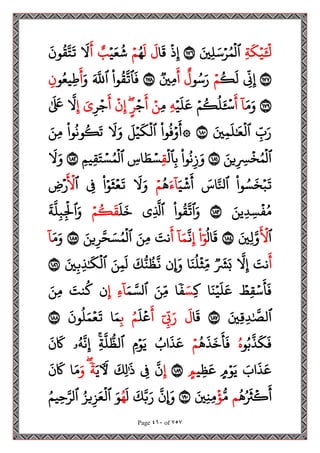 لْـَٔيْكَةِ ٱلْمُرْسَلِينَ ١٧٦ إِذْ قَالَ لَهُمْ شُعَيْبٌ أَلَا تَتَّقُونَ
١٧٧ إِنِّى لَكُمْ رَسُولٌ أَمِينٌ ١٧٨ فَٱتَّقُوا۟ ٱللَّهَ وَأَطِيعُونِ
١٧٩ وَمَآ أَسْـَٔلُكُمْ عَلَيْهِ مِنْ أَجْرٍ إِنْ أَجْرِىَ إِلَّا عَلَىٰ
رَبِّ ٱلْعَـٰلَمِينَ ١٨٠ ۞ أَوْفُوا۟ ٱلْكَيْلَ وَلَا تَكُونُوا۟ مِنَ
ٱلْمُخْسِرِينَ ١٨١ وَزِنُوا۟ بِٱلْقِسْطَاسِ ٱلْمُسْتَقِيمِ ١٨٢ وَلَا
تَبْخَسُوا۟ ٱلنَّاسَ أَشْيَآءَهُمْ وَلَا تَعْثَوْا۟ فِى ٱلْأَرْضِ
مُفْسِدِينَ ١٨٣ وَٱتَّقُوا۟ ٱلَّذِى خَلَقَكُمْ وَٱلْجِبِلَّةَ
ٱلْأَوَّلِينَ ١٨٤ قَالُوٓا۟ إِنَّمَآ أَنتَ مِنَ ٱلْمُسَحَّرِينَ ١٨٥ وَمَآ
أَنتَ إِلَّا بَشَرٌ مِّثْلُنَا وَإِن نَّظُنُّكَ لَمِنَ ٱلْكَـٰذِبِينَ ١٨٦
فَأَسْقِطْ عَلَيْنَا كِسَفًا مِّنَ ٱلسَّمَآءِ إِن كُنتَ مِنَ
ٱلصَّـٰدِقِينَ ١٨٧ قَالَ رَبِّىٓ أَعْلَمُ بِمَا تَعْمَلُونَ ١٨٨
فَكَذَّبُوهُ فَأَخَذَهُمْ عَذَابُ يَوْمِ ٱلظُّلَّةِ ۚ إِنَّهُۥ كَانَ
عَذَابَ يَوْمٍ عَظِيمٍ ١٨٩ إِنَّ فِى ذَٰلِكَ لَـَٔايَةً ۖ وَمَا كَانَ
أَكْثَرُهُم مُّؤْمِنِينَ ١٩٠ وَإِنَّ رَبَّكَ لَهُوَ ٱلْعَزِيزُ ٱلرَّحِيمُ
Page ٤٦٠ of ٧٥٧